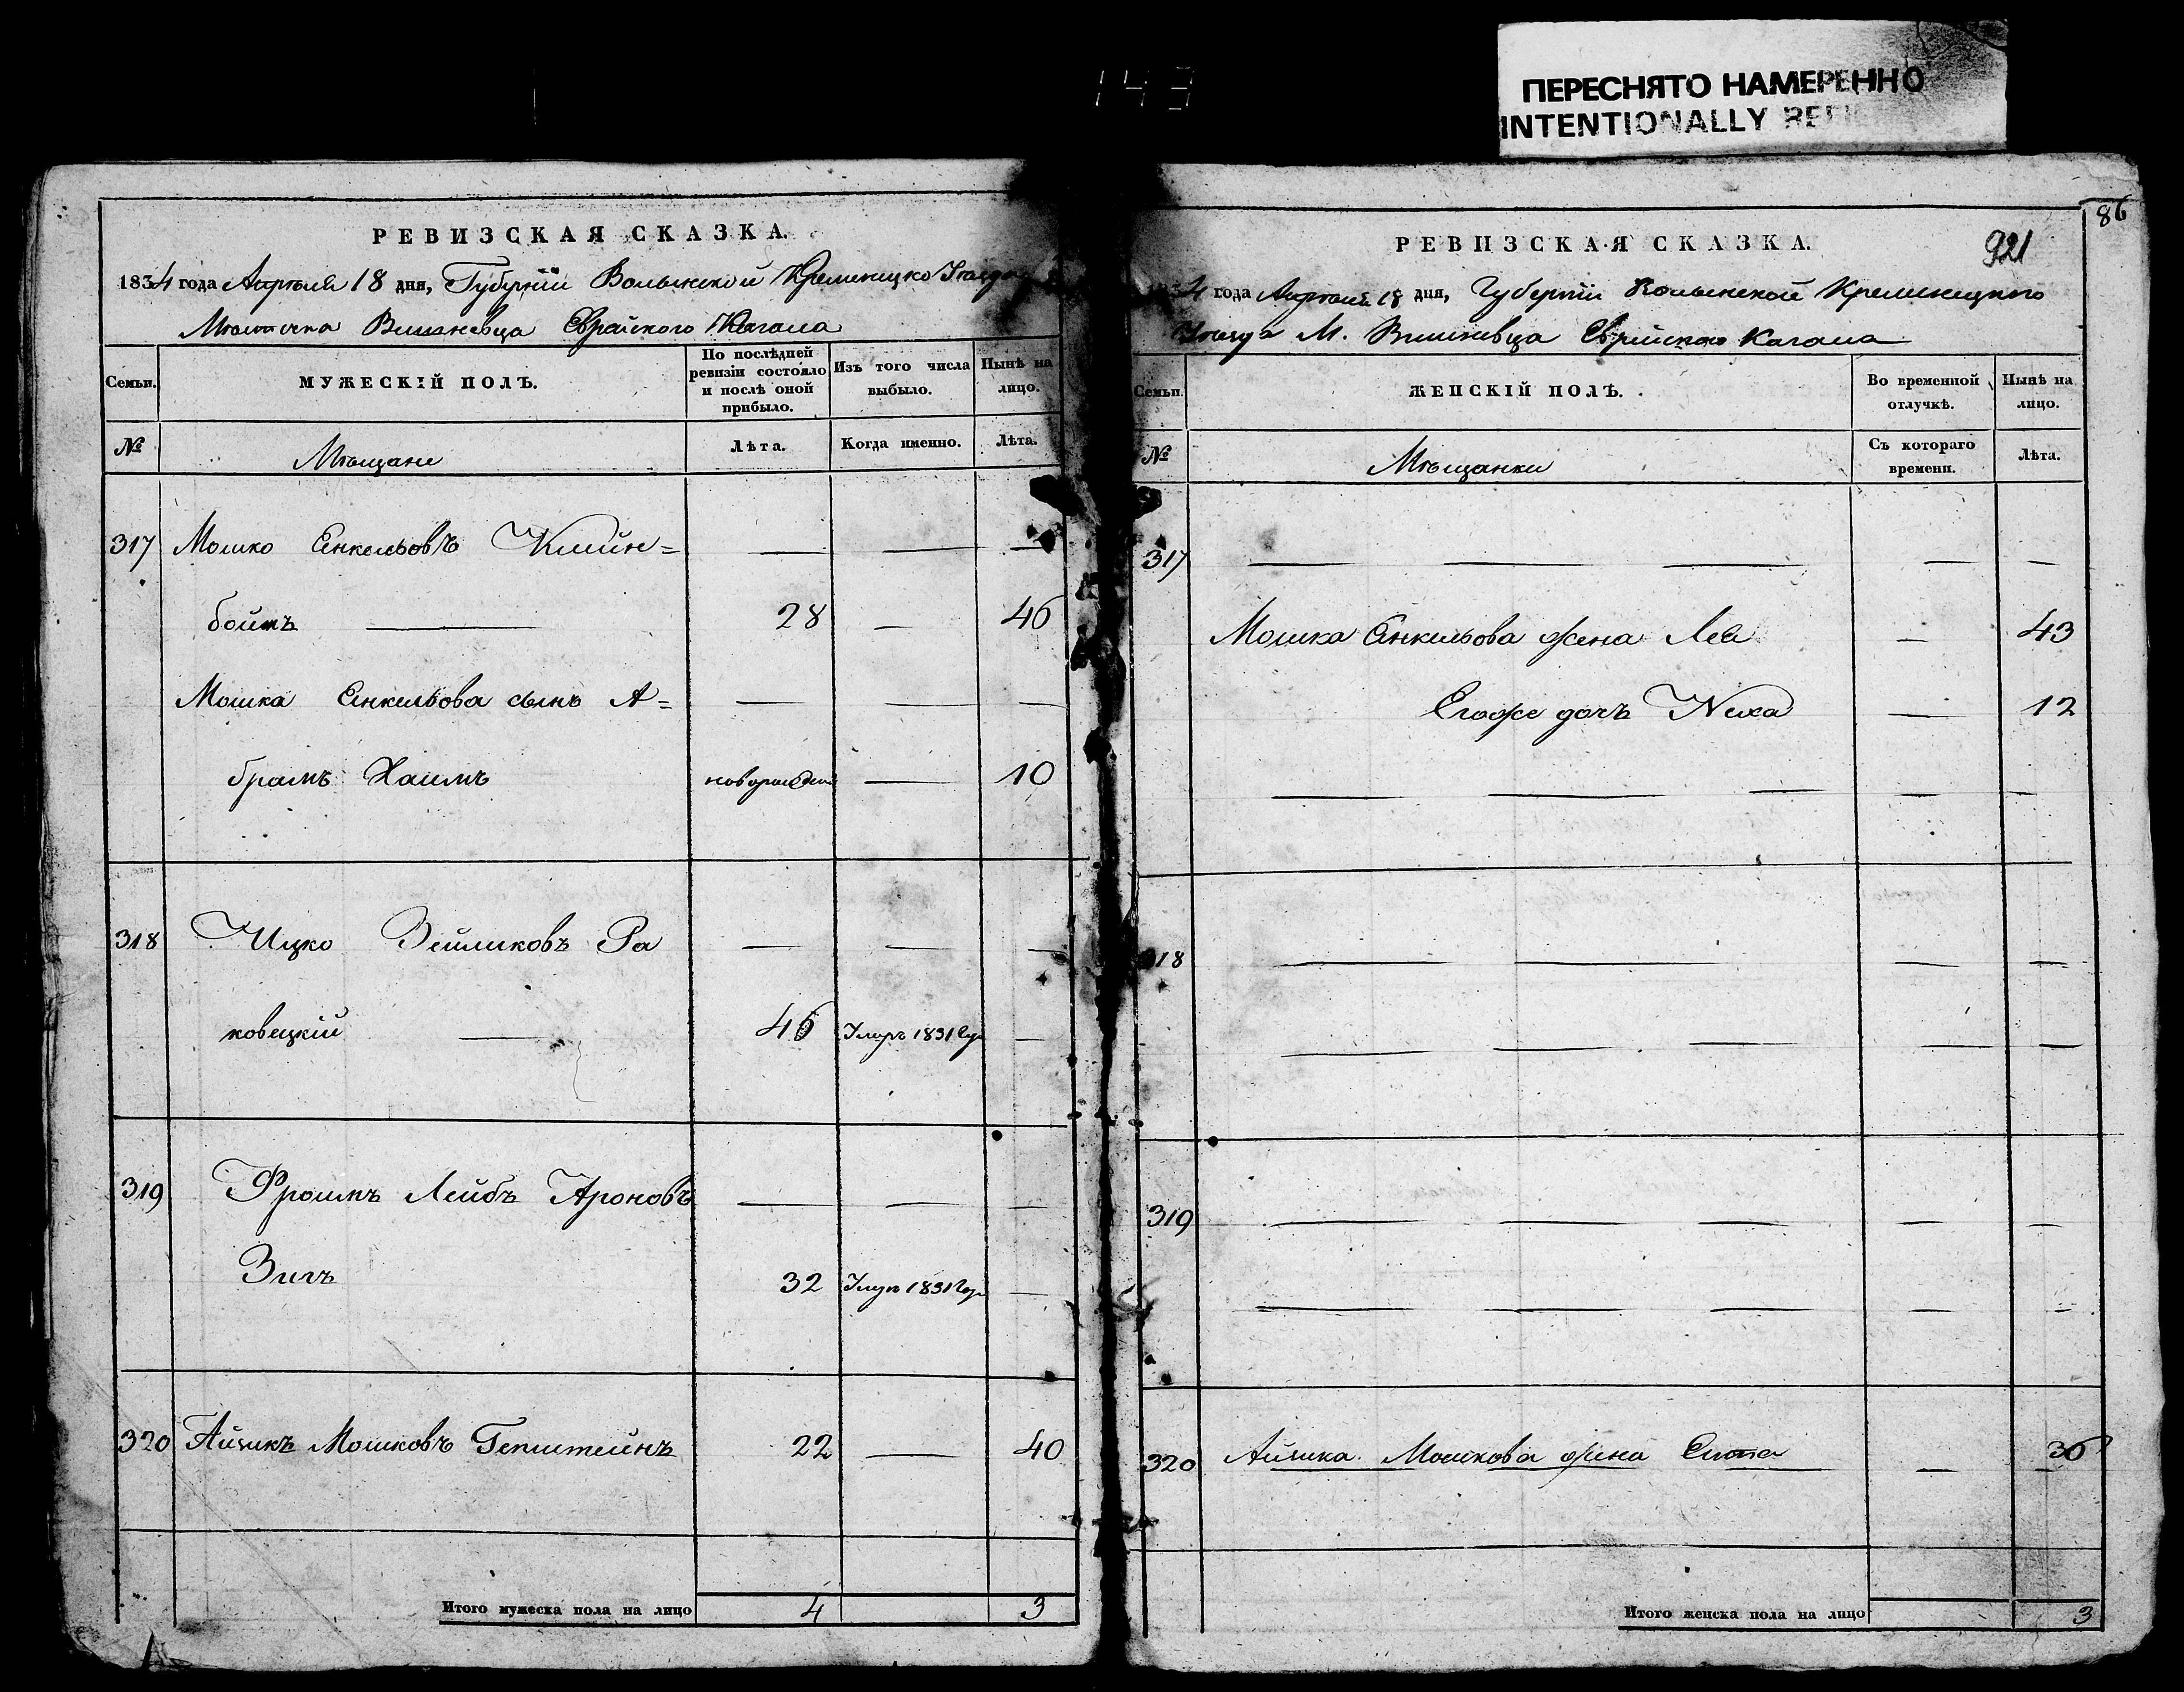 143
ПЕРЕСНЯТО НАМЕРЕННО
INTENTIONALLY
РЕВИЗСКАЯ СКАЗКА.
1834 года Апреля 18 дня, Губерніи Волынской Кременецко Уезда
Местечка Вишневца Еврейского Кагала
Семьи. МУЖЕСКІЙ ПОЛЪ. По послѣдней ревизіи состояло и послѣ оной прибыло. Изъ того числа выбыло. Нынѣ на лицо.
№ Мѣщане Лѣта. Когда именно. Лѣта.
317 Мошко Енкельовъ Клейн=
боймъ — 28 — 46
Мошка Енкельова сынъ А=
брамъ Хаимъ новорожден — 10
318 Ицко Зейликовъ Ра
ковецкій — 46 Умеръ 1831 году —
319 Фроимъ Лейбъ Ароновъ
Зигъ 32 Умеръ 1831 году —
320 Айзикъ Мошковъ Гепштейнъ 22 — 40
Итого мужеска пола на лицо 4 3
86
921
РЕВИЗСКАЯ СКАЗКА.
1834 года Апреля 18 дня, Губерніи Волынской Кременецкого
Уезда М. Вишневца Еврейского Кагала
Семьи. ЖЕНСКІЙ ПОЛЪ. Во временной отлучкѣ. Нынѣ на лицо.
№ Мѣщанки Съ котораго времени. Лѣта.
317
Мошка Енкельова жена Леа — 43
Егоже дочь Неха — 12
318
319
320 Айзика Мошкова жена — 36
Итого женска пола на лицо 3